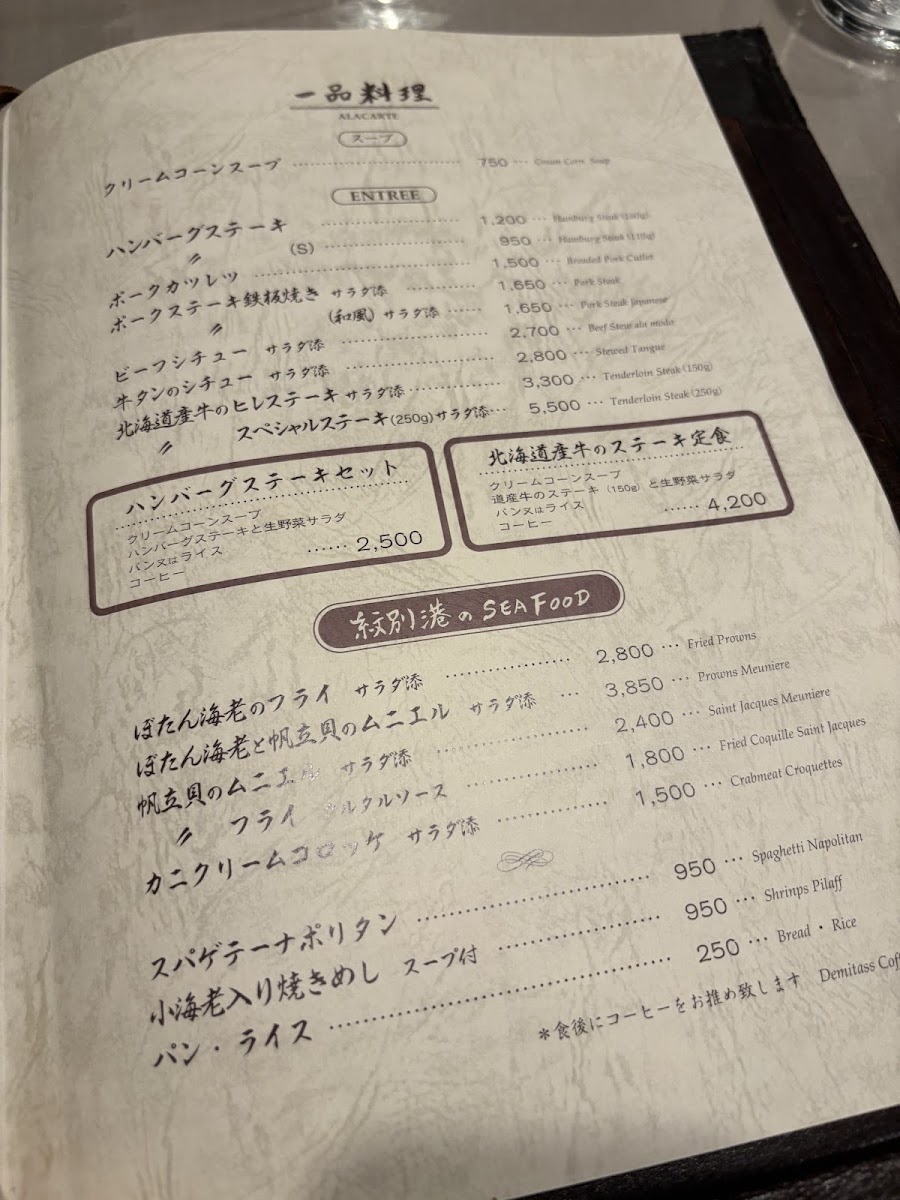 一品料理
ALACARTE
スープ
クリームコーンスープ ………… 750 … Cream Corn Soup
ENTREE
ハンバーグステーキ ………… 1,200 … Hamburg Steak (160g)
〃 (S) ………… 950 … Hamburg Steak (110g)
ポークカツレツ ………… 1,500 … Breaded Pork Cutlet
ポークステーキ鉄板焼き サラダ添 ………… 1,650 … Pork Steak
〃 (和風) サラダ添 …… 1,650 … Pork Steak Japanese
ビーフシチュー サラダ添 ………… 2,700 … Beef Stew ala mode
牛タンのシチュー サラダ添 ………… 2,800 … Stewed Tangue
北海道産牛のヒレステーキ サラダ添 ………… 3,300 … Tenderloin Steak (150g)
〃 スペシャルステーキ(250g) サラダ添… 5,500 … Tenderloin Steak (250g)
ハンバーグステーキセット
クリームコーンスープ
ハンバーグステーキと生野菜サラダ
パン又はライス
コーヒー …… 2,500
北海道産牛のステーキ定食
クリームコーンスープ
道産牛のステーキ (150g) と生野菜サラダ
パン又はライス
コーヒー …… 4,200
紋別港の SEA FOOD
ぼたん海老のフライ サラダ添 ………… 2,800 … Fried Prowns
ぼたん海老と帆立貝のムニエル サラダ添 … 3,850 … Prowns Meuniere
帆立貝のムニエル サラダ添 ………… 2,400 … Saint Jacques Meuniere
〃 フライ タルタルソース ………… 1,800 … Fried Coquille Saint Jacques
カニクリームコロッケ サラダ添 ………… 1,500 … Crabmeat Croquettes
スパゲテーナポリタン ………… 950 … Spaghetti Napolitan
小海老入り焼きめし スープ付 ………… 950 … Shrinps Pilaff
パン・ライス ………… 250 … Bread・Rice
＊食後にコーヒーをお推め致します Demitass Coff